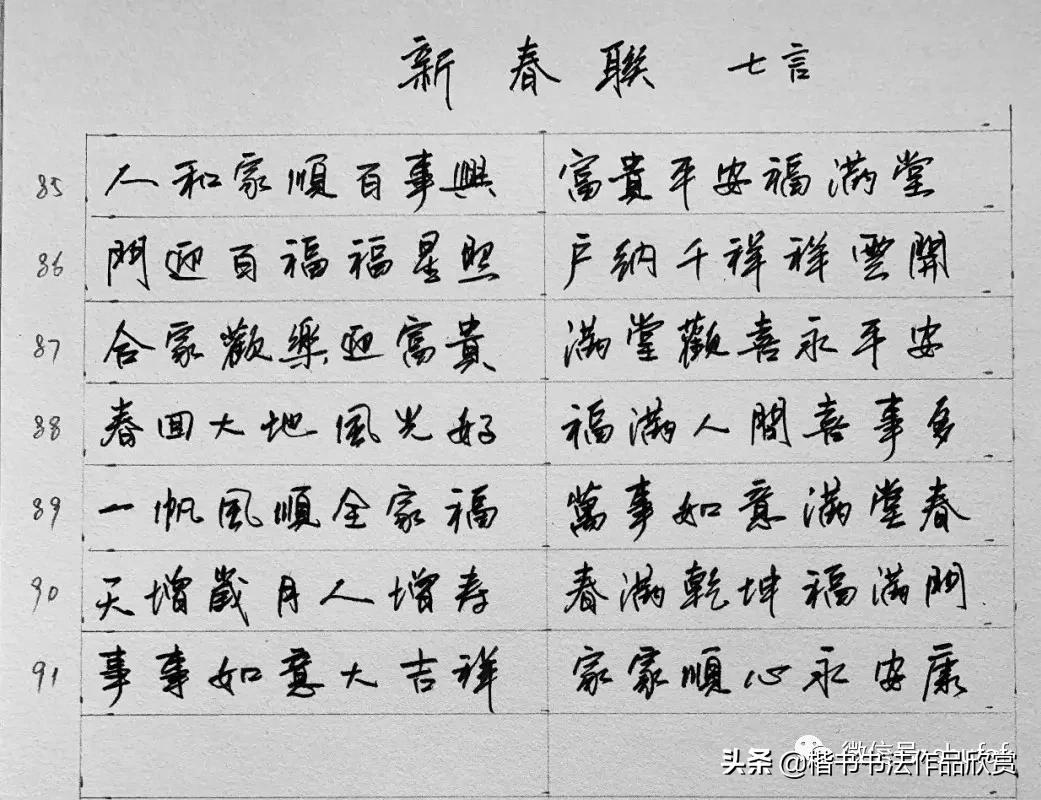 新春联 七言
85 人和家順百事興 富貴平安福滿堂
86 門迎百福福星照 戶納千祥祥雲開
87 合家歡樂迎富貴 滿堂歡喜永平安
88 春回大地風光好 福滿人間喜事多
89 一帆風順全家福 萬事如意滿堂春
90 天增歲月人增寿 春滿乾坤福滿門
91 事事如意大吉祥 家家順心永安康
微信号
头条 @楷书书法作品欣赏